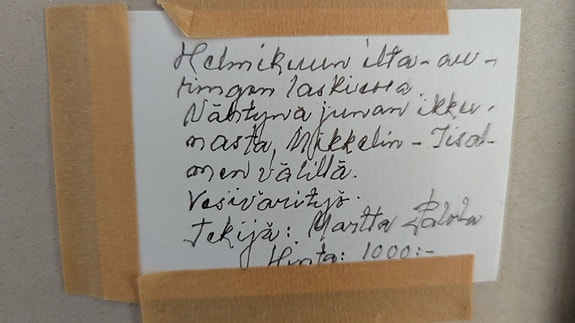 Helmikuun ilta-au-
ringon laskiessa.
Nähtynä junan ikku-
nasta, Mikkelin - Iisal-
men välillä.
Vesivärityö.
Tekijä: Martta
Hinta: 1000:-